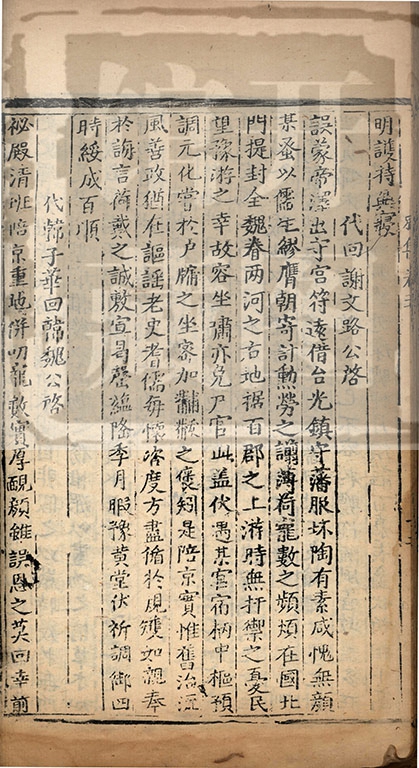 明護待無寢
代回謝文路公啓
誤蒙帝澤出守宮符逺借台光鎮守藩服坏陶有素咸愧無顔
某蚤以儒生繆膺朝寄計勳勞之譾薄荷寵數之頻煩在國北
門提封全魏眷兩河之右地裾百郡之上游時無扞禦之憂民
望豫游之幸故容坐嘯亦免尸官此盖伏遇某官宿柄中樞預
調元化嘗於戶牖之坐密加黼黻之褒矧是陪京實惟舊治流
風善政猶在謳謡老吏耆儒毎懷咨度方盡循於規矱如親奉
於誨言荷戴之誠敷宣曷罄緬隆季月暇豫黄堂伏祈調御四
時綏成百順
代韓子華回韓魏公啓
祕殿清班陪京重地倂叨寵數實厚靦顔雖誤恩之英回幸前